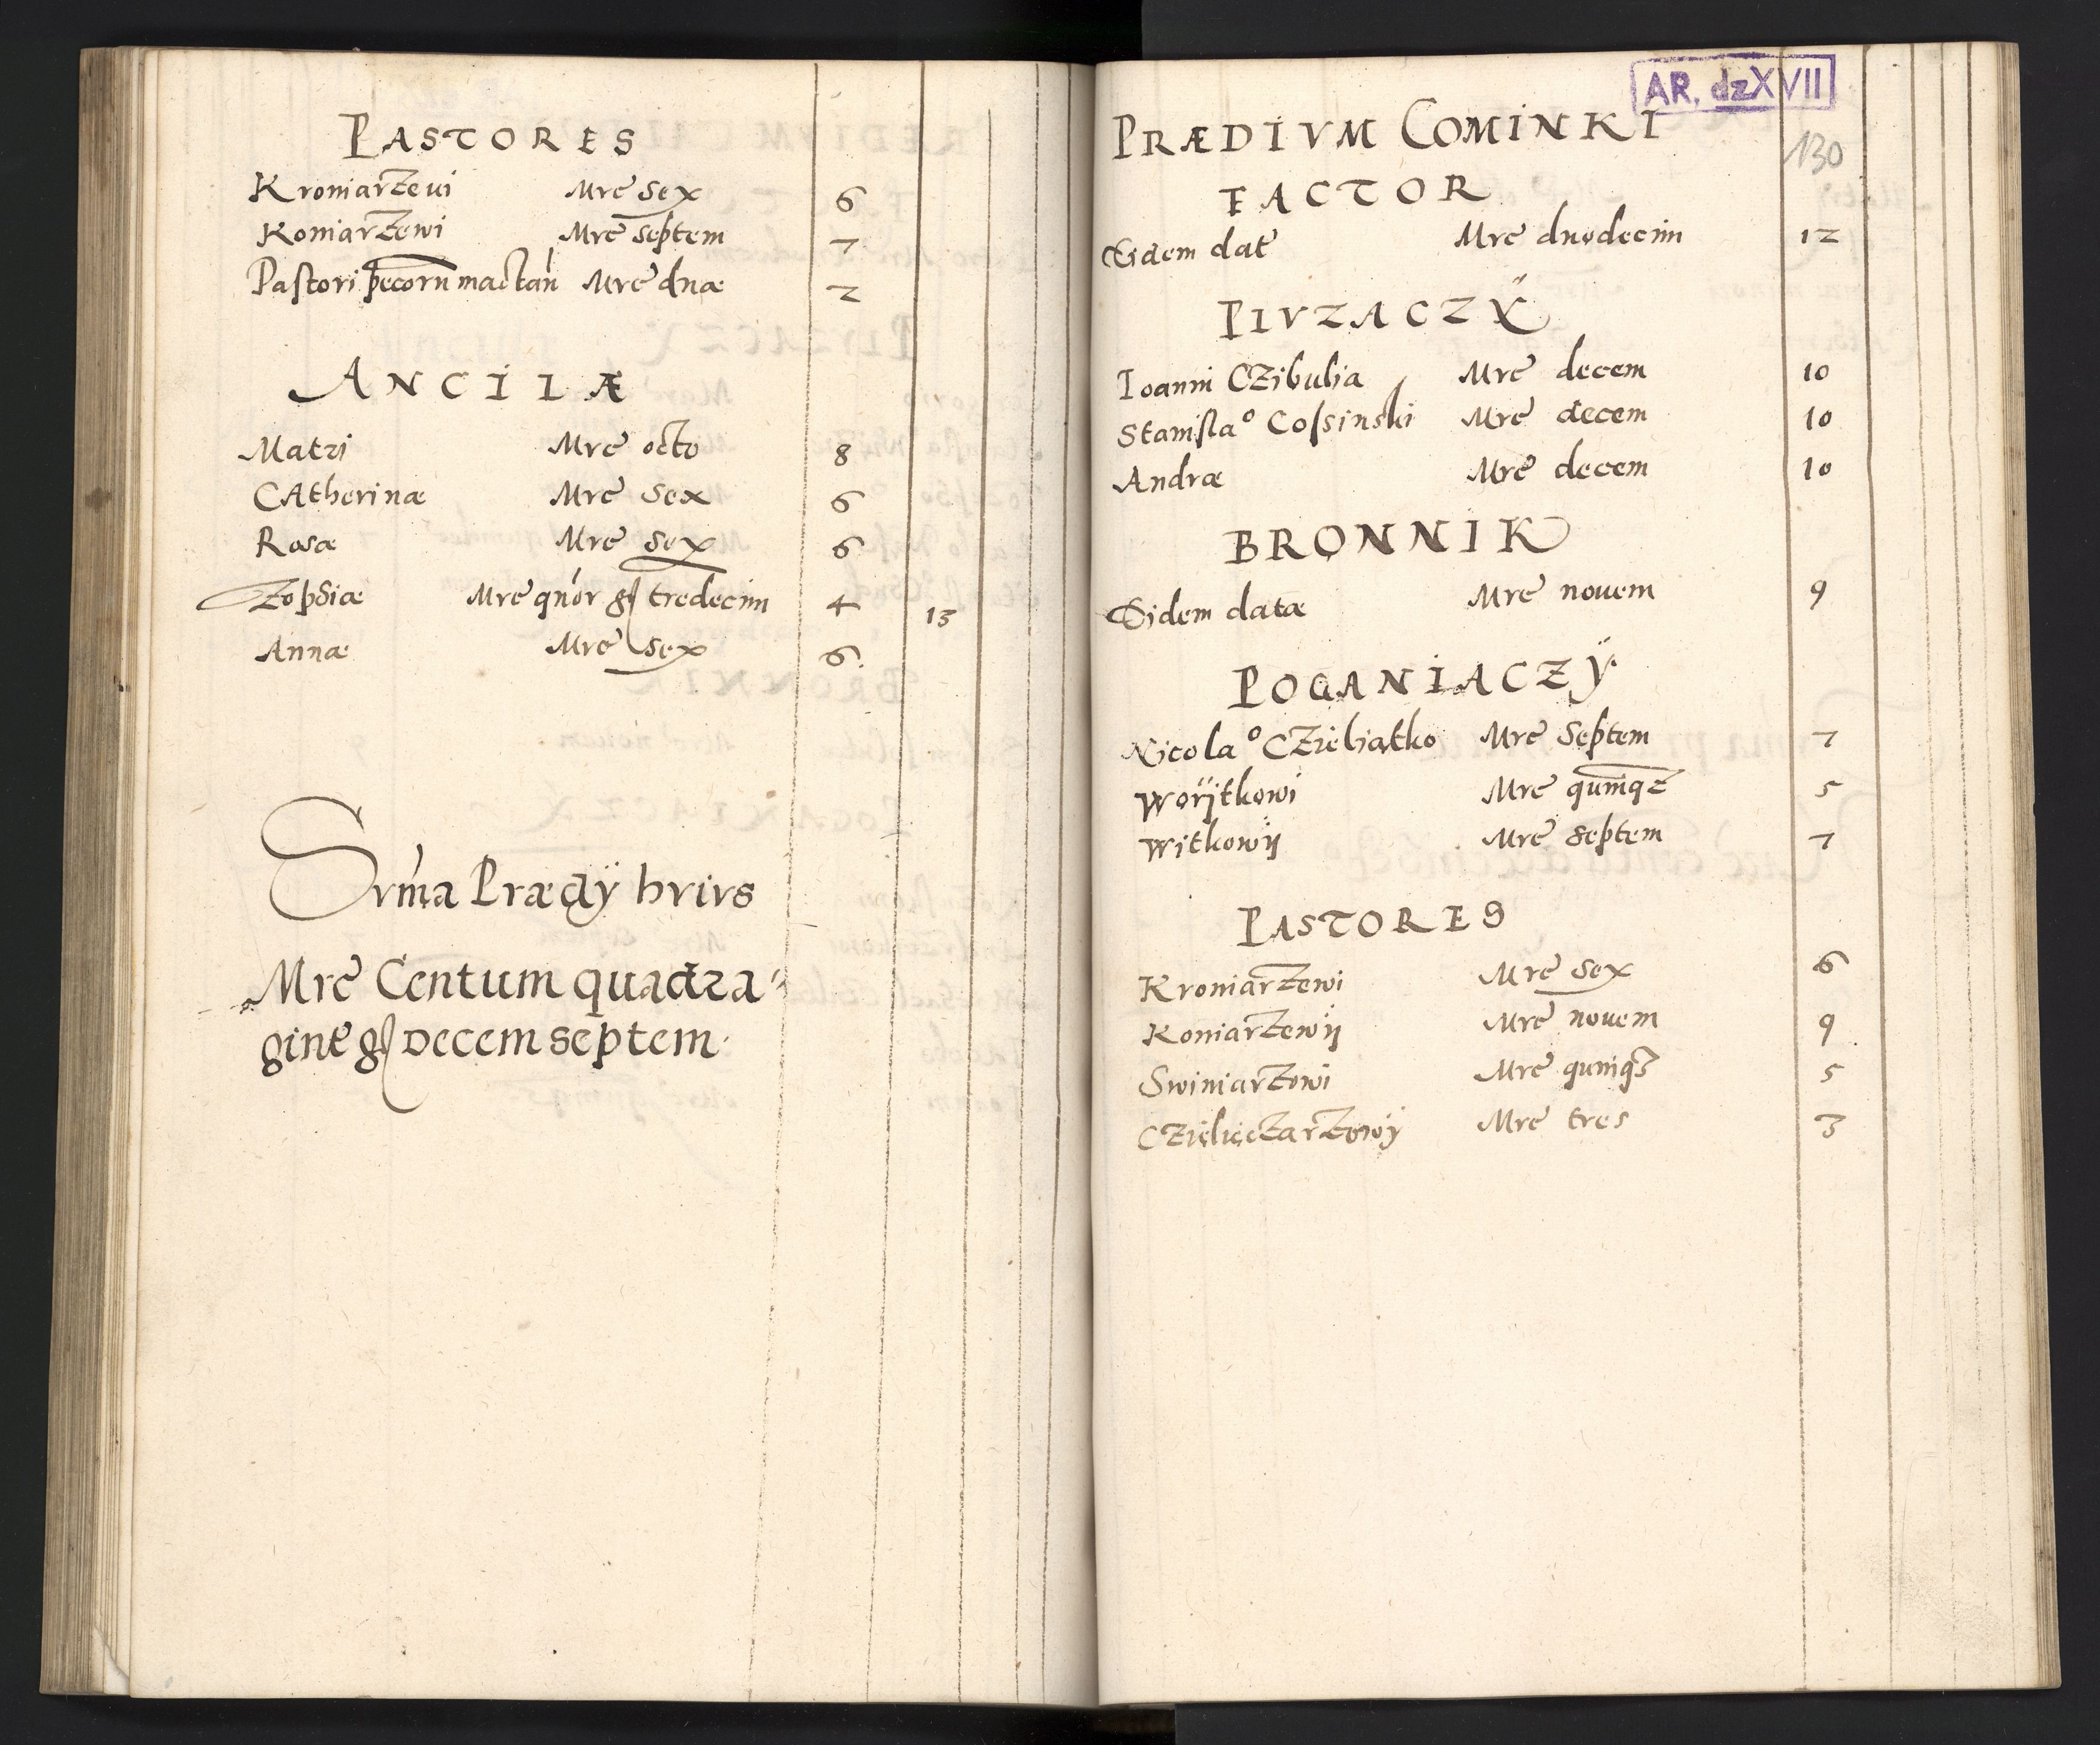 PASTORES
Kroniarzeui Mre sex 6
Koniarzewi Mre septem 7
Pastori pecorũ mactan̍ Mre duæ 2
ANCILLÆ
Matri Mre octo 8
CAtherinæ Mre sex 6
Rosæ Mre sex 6
Zopsiæ Mre qn̍or gʃ tredecim 4 13
Annæ Mre sex 6.
Sum̍a Prædÿ hvivs
Mre Centum quadra-
ginte gʃ Decem septem.
AR. dzXVII
130
PRÆDIVM COMINKI
FACTOR
Eidem dat Mre duodecim 12
PLVZACZŸ
Ioanni CZibulia Mre decem 10
Stanisla° Cossinski Mre decem 10
Andræ Mre decem 10
BRONNIK
Eidem datæ Mre nouem 9
POGANIACZŸ
Nicola° CZieliątko Mre Septem 7
Woÿtkowi Mre quinqz 5
Witkowÿ Mre septem 7
PASTORES
Kroniarzewi Mre sex 6
Koniarzewÿ Mre nouem 9
Swiniarzowi Mre quinqz 5
CZielięczarzowÿ Mre tres 3